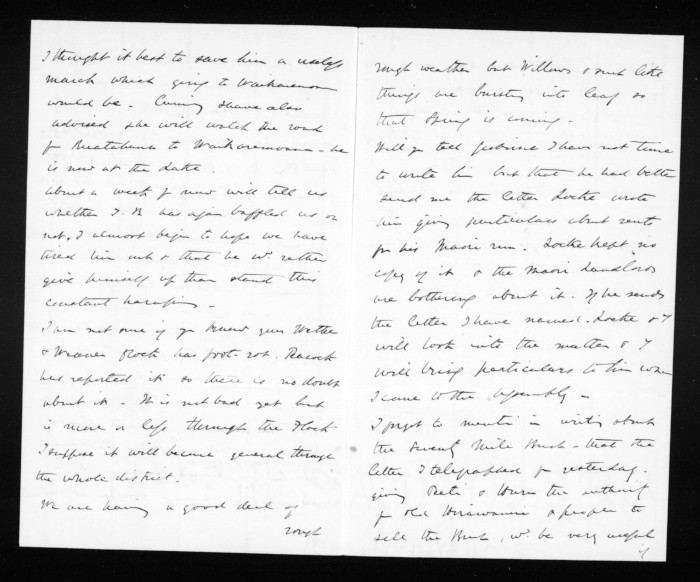 I thought it best to save him a useless
march which going to Waikaremoana
would be.
advised she will watch the road
fr Ruatahuna to Waikaremoana - he
is now at the Lake.
about a week fr now will tell us
whether T.K has again baffled us or
not, I almost begin to hope we have
tired him out & that he wd rather
give himself up than stand this
constant harassing -
I am not sure if you know your Wether
& Weaner flock has foot-rot. Peacock
has reported it so there is no doubt
about it - It is not bad yet but
is more or less through the Flock
I suppose it will become general through
the whole district.
We are having a good deal of
rough
rough weather but Willows & such like
things are bursting into leaf so
that Spring is coming -
Will you tell I have not time
to write him but that he had better
send me the letter Locke wrote
him giving particulars about rent
for his Maori run. Locke kept no
copy of it & the Maori Landlords
are bothering about it. If he sends
the letter I have named - Locke & I
will look into the matter & I
will bring particulars to him when
I come to the Assembly -
I forgot to mention in writing about
the Seventy Mile Bush - that the
letter I telegraphed fr yesterday -
giving & the authority
fr old & people to
sell the Bush, wd be very useful
if